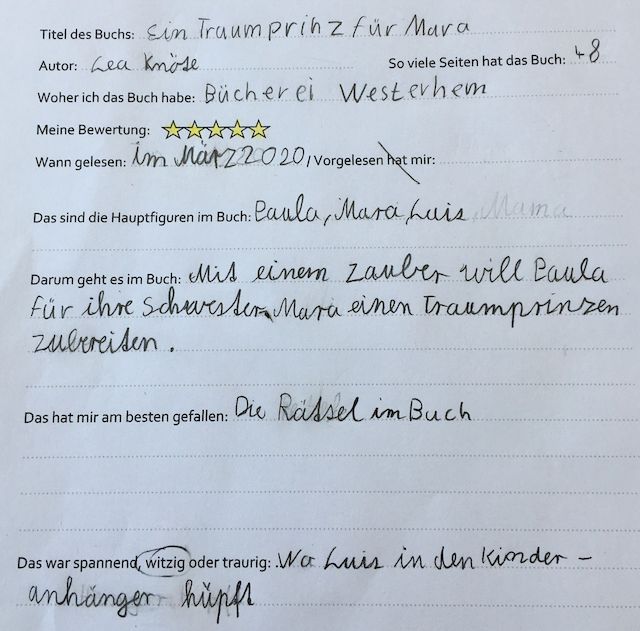 Titel des Buchs: Ein Traumprinz für Mara
Autor: Lea Knöse So viele Seiten hat das Buch: 48
Woher ich das Buch habe: Bücherei Westerhem
Meine Bewertung:
Wann gelesen: im März 2020, / Vorgelesen hat mir:
Das sind die Hauptfiguren im Buch: Paula, Mara, Luis, Mama
Darum geht es im Buch: Mit einem Zauber will Paula
für ihre Schwester Mara einen Traumprinzen
zubereiten.
Das hat mir am besten gefallen: Die Rätsel im Buch
Das war spannend, witzig oder traurig: Wo Luis in den Kinder-
anhänger hüpft